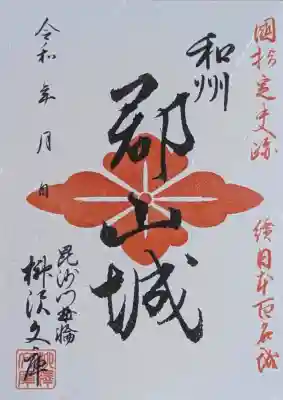 國指定史跡　續日本百名城
和州
郡山城
毘沙門曲輪
柳沢文庫
令和　年　月　日